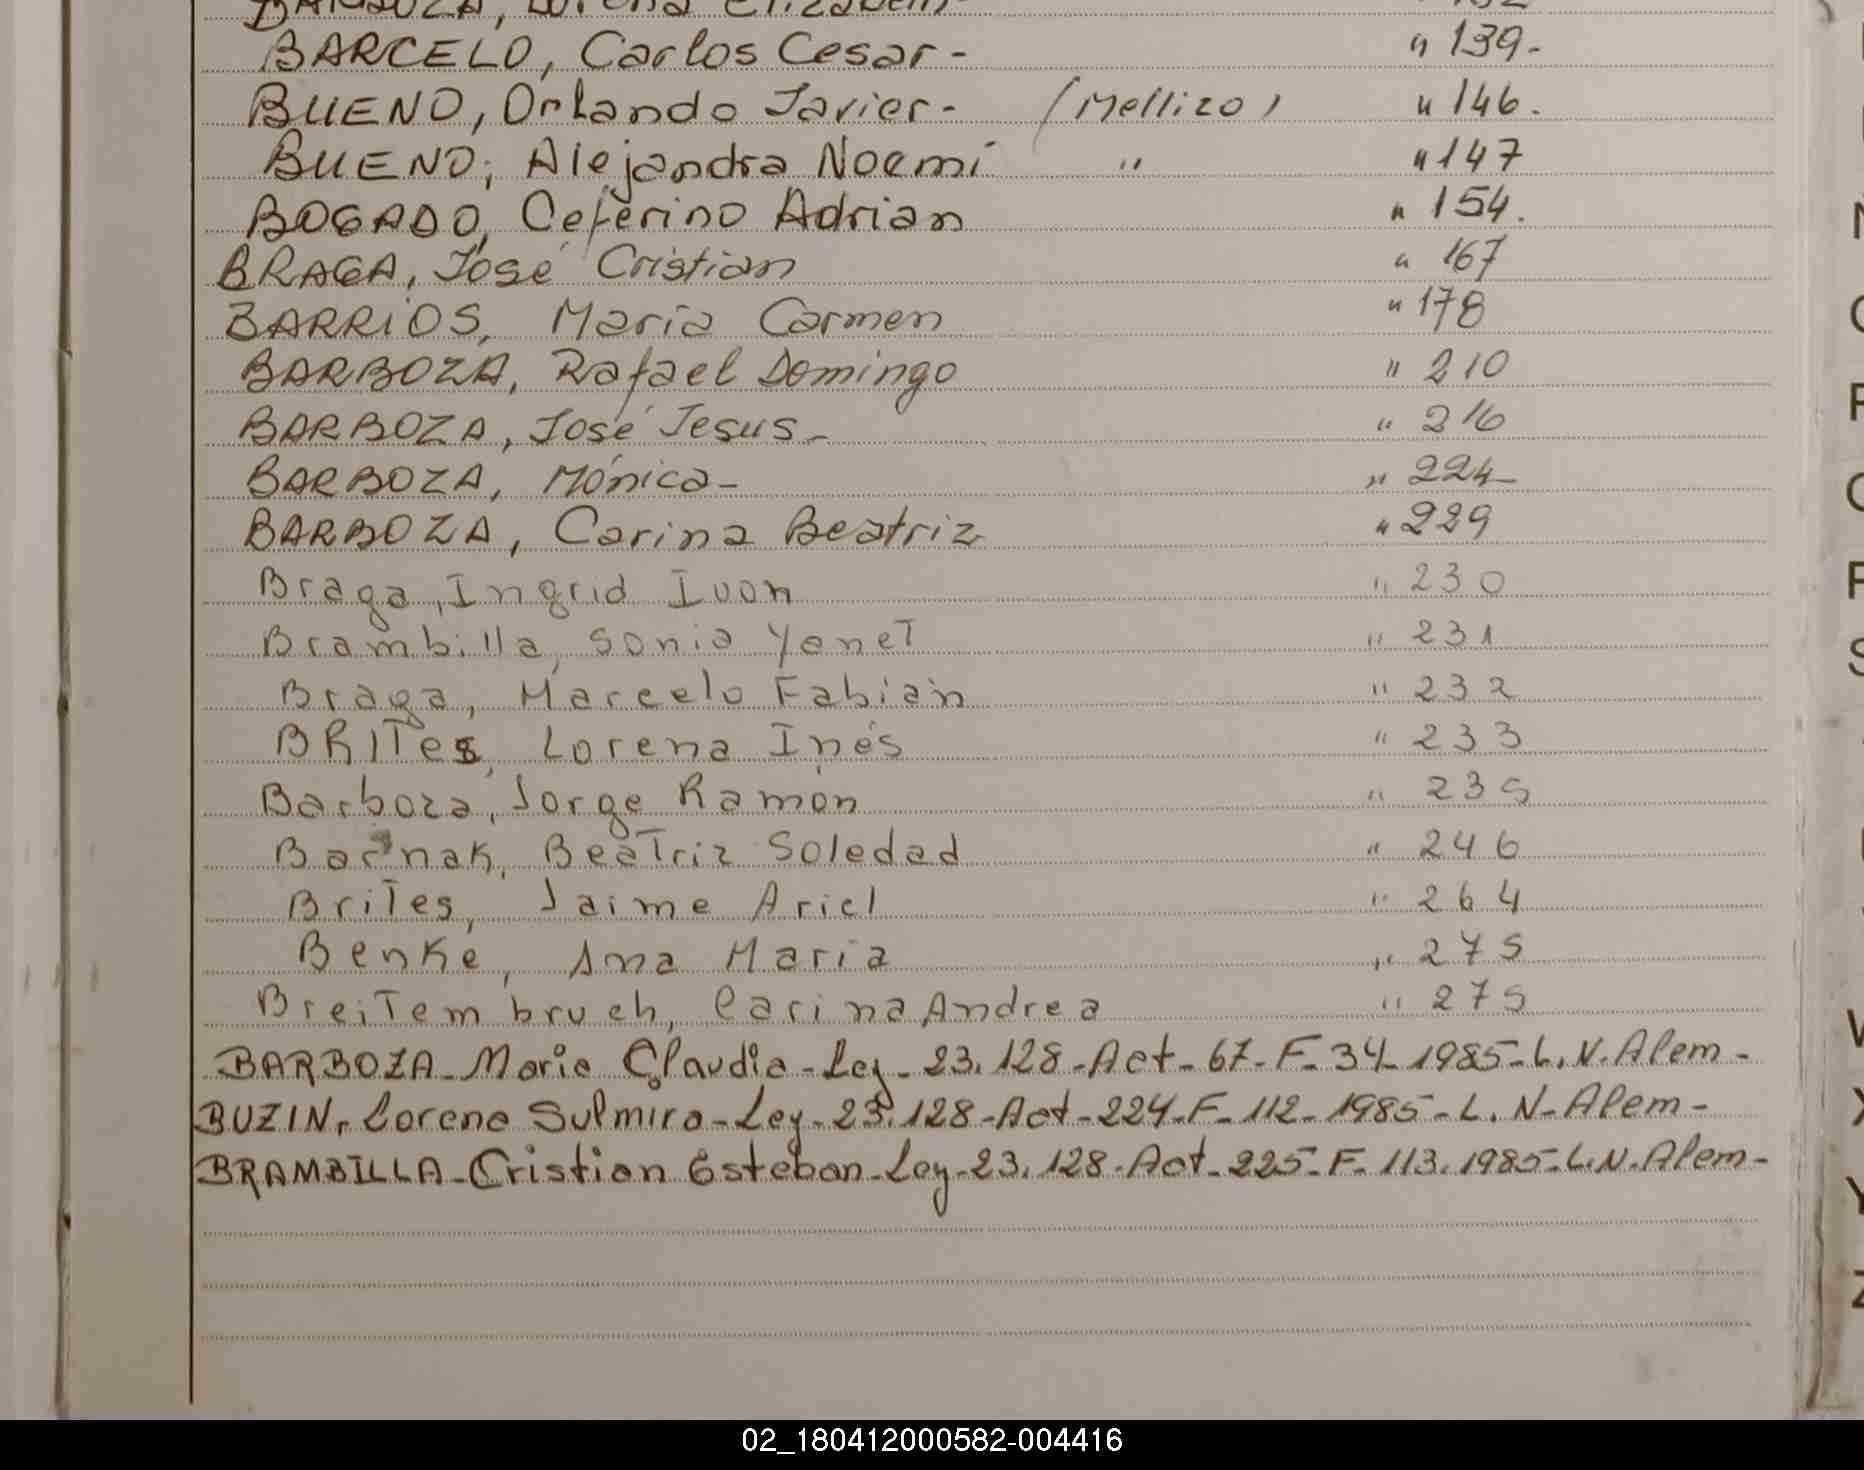 BARBOZA, Lorena Elizabeth - " 132
BARCELO, Carlos Cesar - " 139.
BUENO, Orlando Javier - (Mellizo) " 146.
BUENO, Alejandra Noemí " " 147
BOGADO, Ceferino Adrian " 154.
BRAGA, José Cristian " 167
BARRIOS, Maria Carmen " 178
BARBOZA, Rafael Domingo " 210
BARBOZA, José Jesus - " 216
BARBOZA, Mónica - " 224
BARBOZA, Carina Beatriz " 229
Braga, Ingrid Ivon " 230
Brambilla, Sonia Yanet " 231
Braga, Marcelo Fabián " 232
BRITes, Lorena Inés " 233
Barboza, Jorge Ramón " 235
Bacnak, Beatriz Soledad " 246
Brites, Jaime Ariel " 264
Benke, Ana Maria " 275
Breitembruch, Carina Andrea " 275
BARBOZA - Maria Claudia - Ley - 23.128 - Act - 67 - F - 34 - 1985 - L.N. Alem -
BUZIN, Lorena Sulmira - Ley - 23.128 - Act - 224 - F - 112 - 1985 - L. N - Alem -
BRAMBILLA - Cristian Esteban - Ley - 23.128 - Act - 225 - F - 113. 1985 - L.N. Alem -
N
P
P
S
W
X
Y
Z
02_180412000582-004416